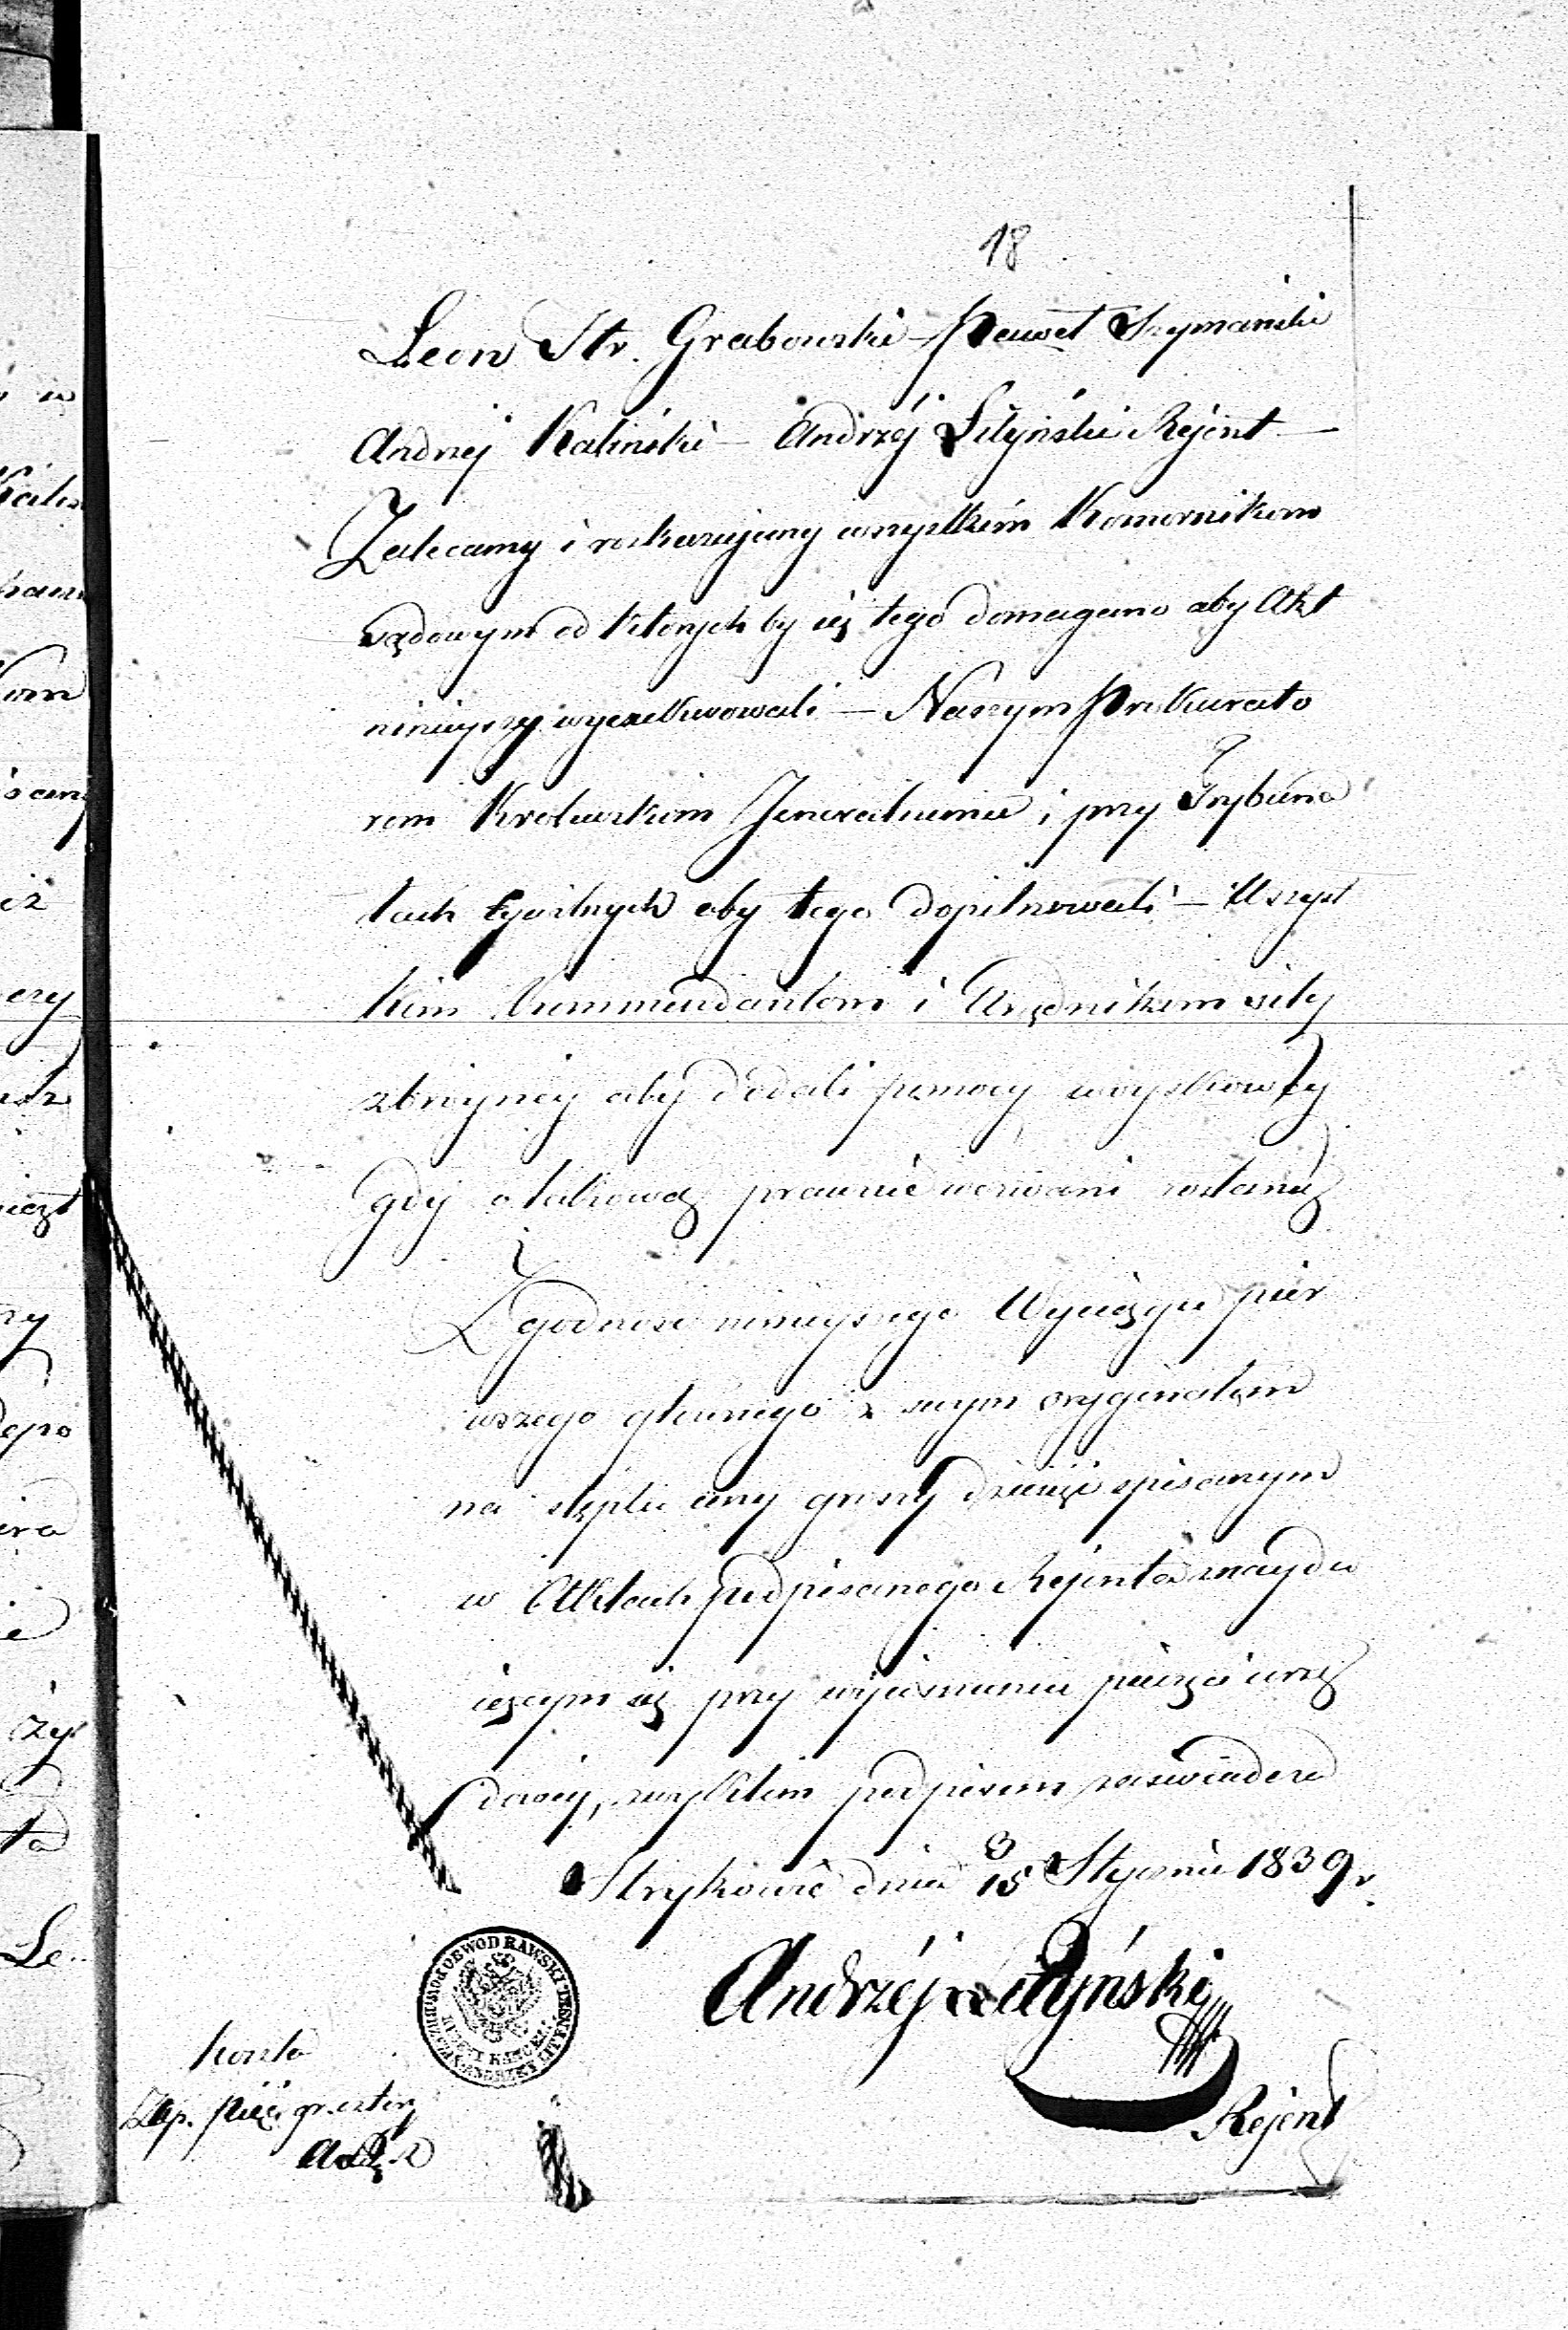 18
Leon Str. Grabowski – Paweł Szymański
Andrzej Kaliński – Andrzéj Lityński Rejént –
Zalecamy i roskazujemy wszystkim Komornikom
sądowym od których by się tego domagano aby Akt
ninieyszy wyexekwowali – Naszym Prokurato
rom Królewskim Jeneralnemu i przy Trybuna
łach Cywilnych aby tego dopilnowali – Wszyst
kim Kommendantom i Urzędnikom siły
zbroyney aby dodali pomocy woyskowey
gdy o takową prawnie wezwani zostaną
Zgodność ninieyszego Wyciągu pier
wszego głównego z swym oryginałem
na stęplu ceny groszy dziesięć spisanym
w Aktach podpisanego Rejenta znaydu
iącym się przy wyciśnieniu pieczęci urzę
dowey, zwykłym podpisem zaświadcza
Strykowie dnia 3/15 Stycznia 1839 r.
Andrzéj Lityński
Rejent
OBWOD RAWSKI
koszta
Złp. pięć gr. cztery